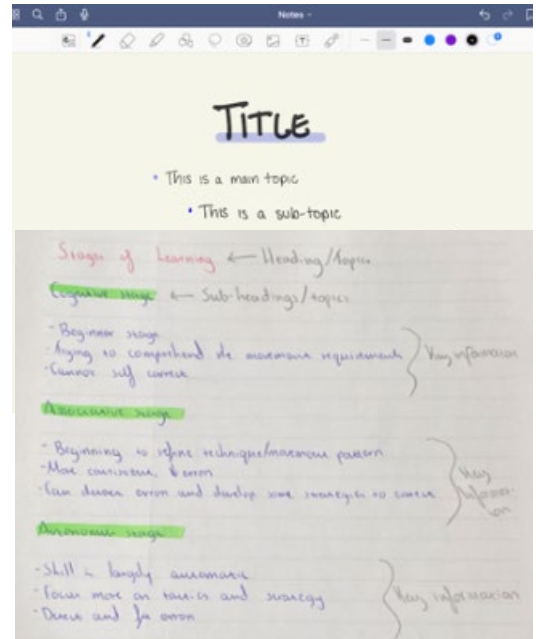 Notes
TITLE
• This is a main topic
• This is a sub-topic
Stages of Learning ← Heading/topics
Cognitive stage ← Sub-headings/topics
- Beginner stage
- Trying to comprehend the movement requirements
- Cannot self correct
Key information
Associative stage
- Beginning to refine technique/movement pattern
- More consistent, error
- Can detect error and develop some strategies to correct
Key informa-
on
Autonomous stage
- Skill is largely automatic
- Focus more on tactics and strategy
- Detect and fix error
Key information